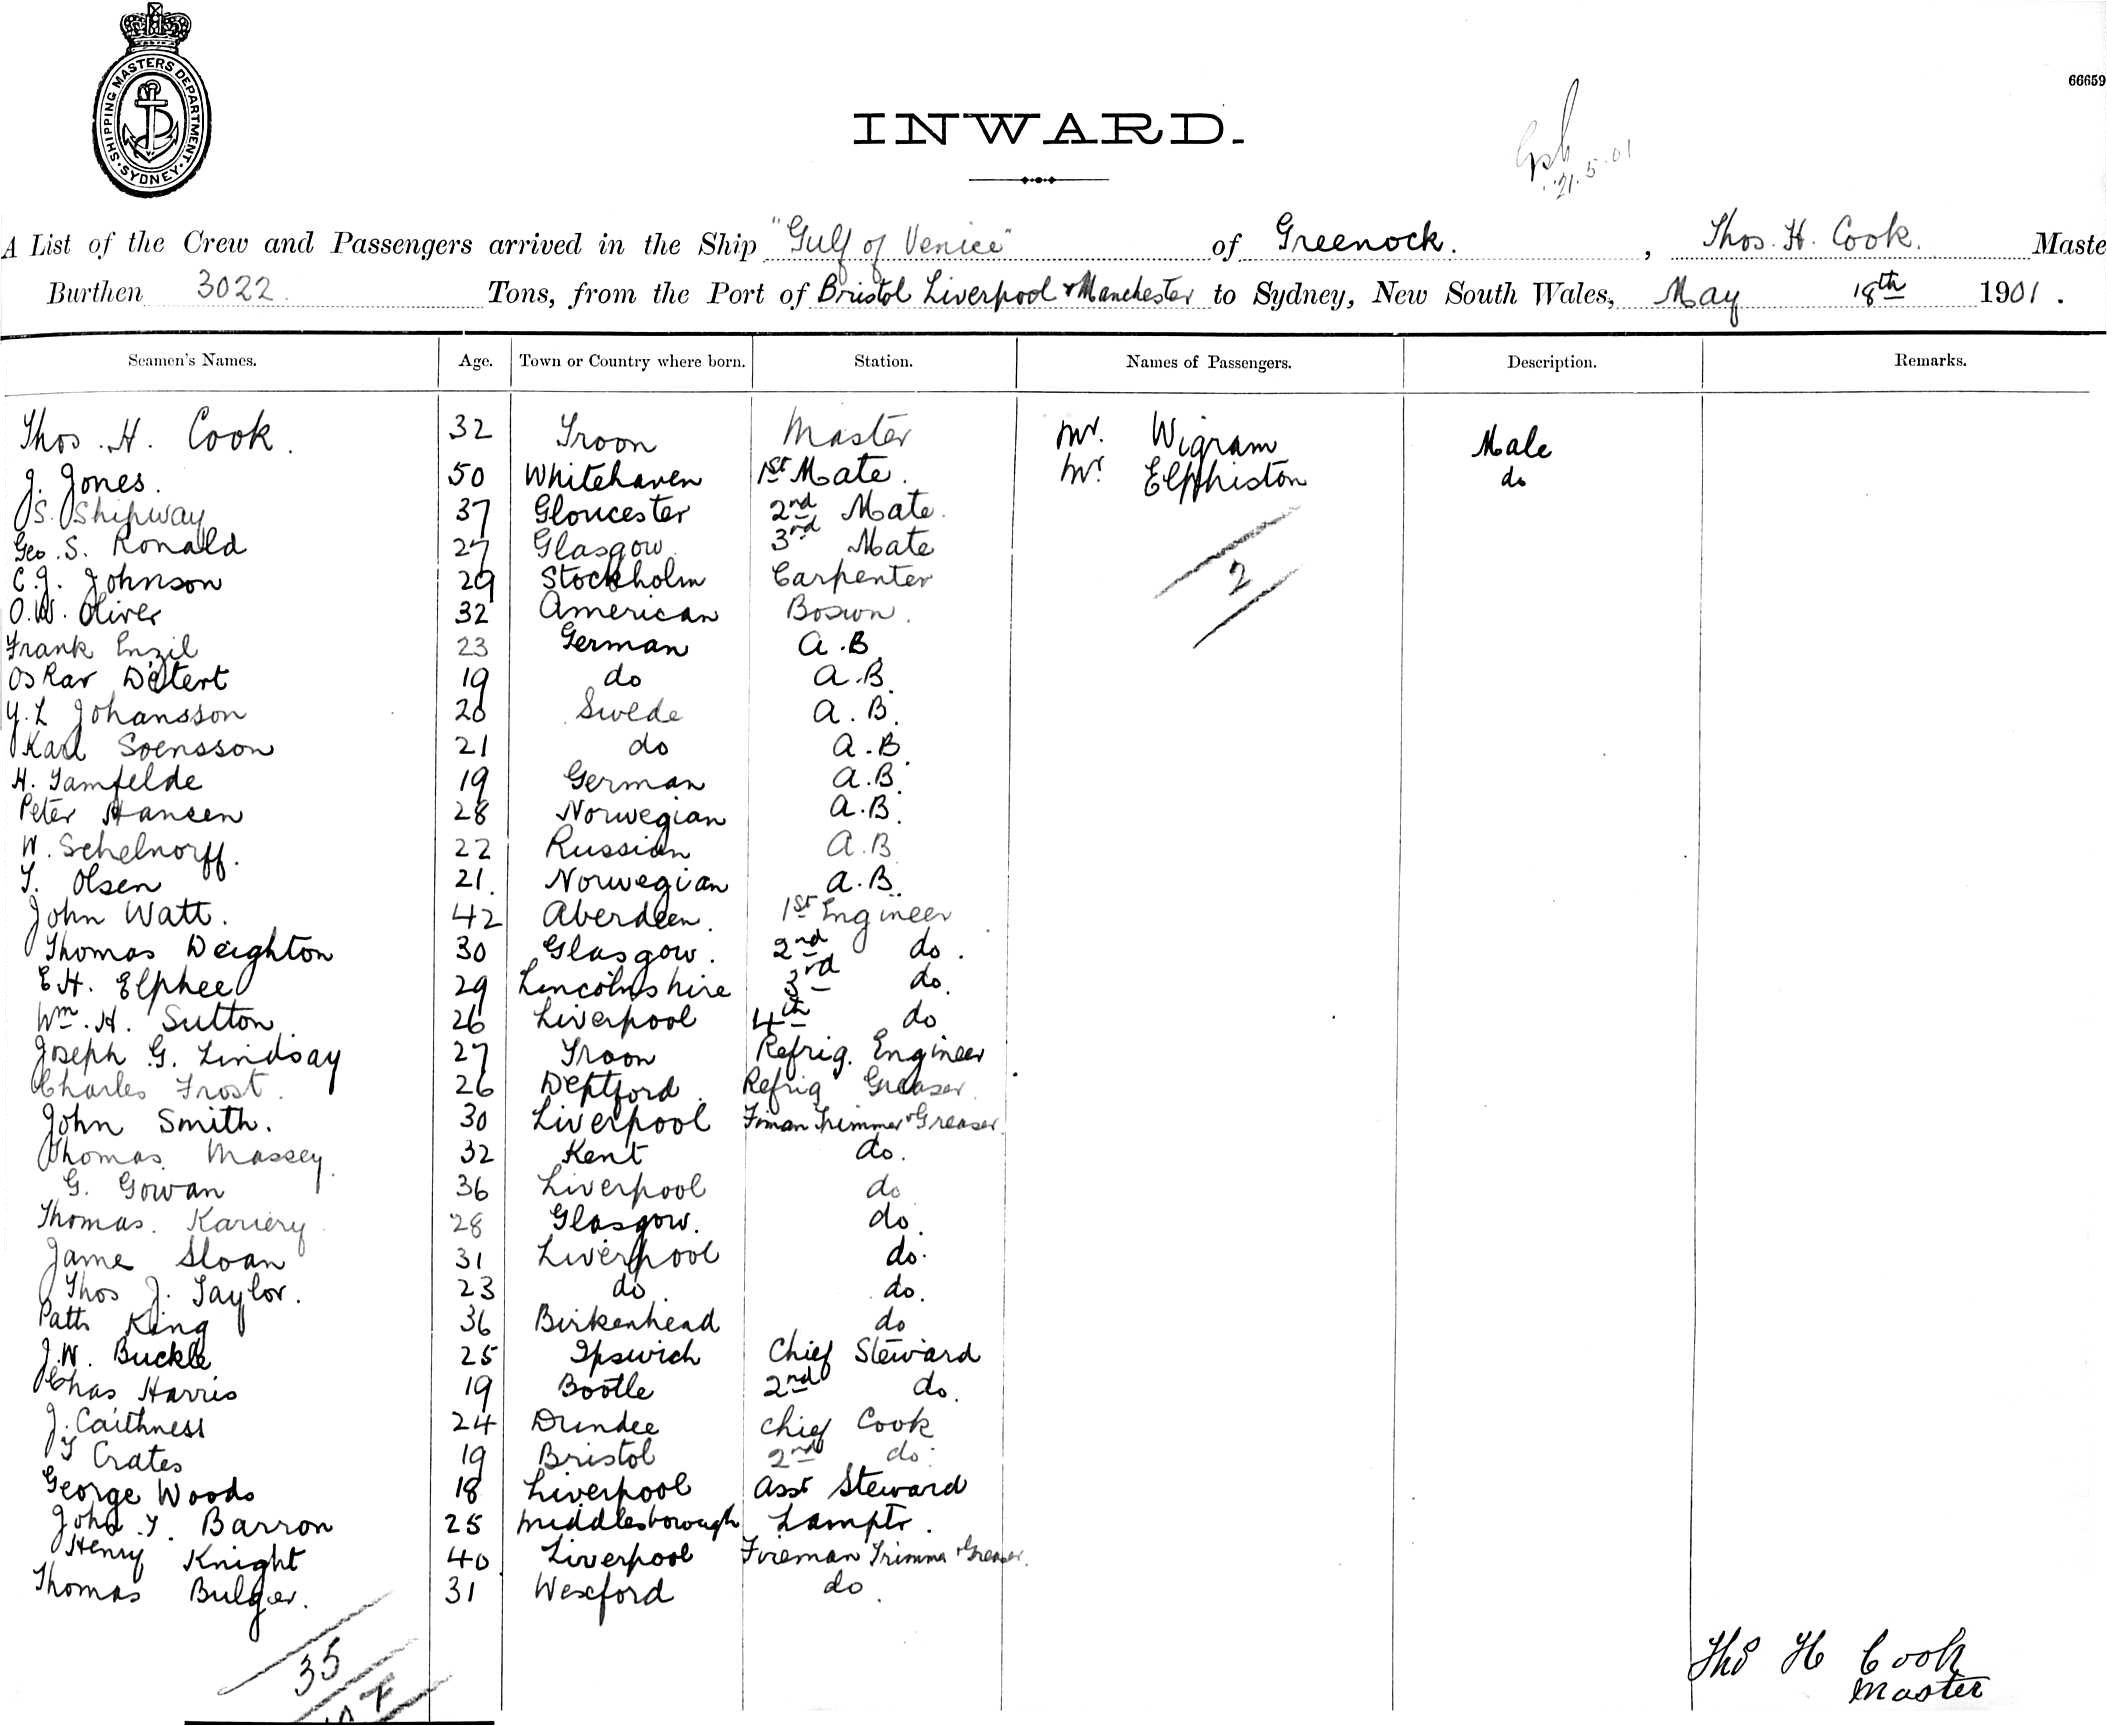 SHIPPING MASTERS DEPARTMENT
SYDNEY
66659
INWARD.
21.5.01
A List of the Crew and Passengers arrived in the Ship "Gulf of Venice" of Greenock. , Thos. H. Cook. Maste
Burthen 3022 Tons, from the Port of Bristol Liverpool & Manchester to Sydney, New South Wales, May 18th 1901.
Seamen's Names. Age. Town or Country where born. Station. Names of Passengers. Description. Remarks.
Thos. H. Cook. 32 Troon Master Mr. Wigram Male
J. Jones. 50 Whitehaven 1st Mate. Mr. Elphiston do
S. Shipway 37 Gloucester 2nd Mate.
Geo. S. Ronald 27 Glasgow 3rd Mate
C. J. Johnson 29 Stockholm Carpenter 2
O.W. Oliver 32 American Bosun.
Frank Enzil 23 German A.B.
Oskar Detert 19 do A.B.
Y. L Johansson 20 Swede A.B.
Karl Soensson 21 do A.B.
H. Tamfelde 19 German A.B.
Peter Hansen 28 Norwegian A.B.
W. Schelnorff. 22 Russian A.B
T. Olsen 21. Norwegian A.B.
John Watt. 42 Aberdeen. 1st Engineer
Thomas Deighton 30 Glasgow. 2nd do.
E H. Elphee 29 Lincolnshire 3rd do.
Wm. H. Sutton. 26 Liverpool 4th do
Joseph G. Lindsay 27 Troon Refrig. Engineer
Charles Frost. 26 Deptford. Refrig Greaser.
John Smith. 30 Liverpool Fiman Trimmer & Greaser.
Thomas Massey. 32 Kent do.
G. Gowan 36 Liverpool do
Thomas. Kariery 28 Glasgow. do.
Jame Sloan 31 Liverpool do.
Thos J. Taylor. 23 do. do.
Patk King 36 Birkenhead do
J.W. Buckle 25 Ipswich Chief Steward
Chas Harris 19 Bootle 2nd do.
J. Caithness 24 Dundee Chief Cook
T Crates 19 Bristol 2nd do.
George Woods 18 Liverpool Asst Steward
John T. Barron 25 Middlesborough Lamptr.
Henry Knight 40 Liverpool Fireman Trimmer & Greaser.
Thomas Bulger. 31 Wexford do.
35
Thos H Cook
Master